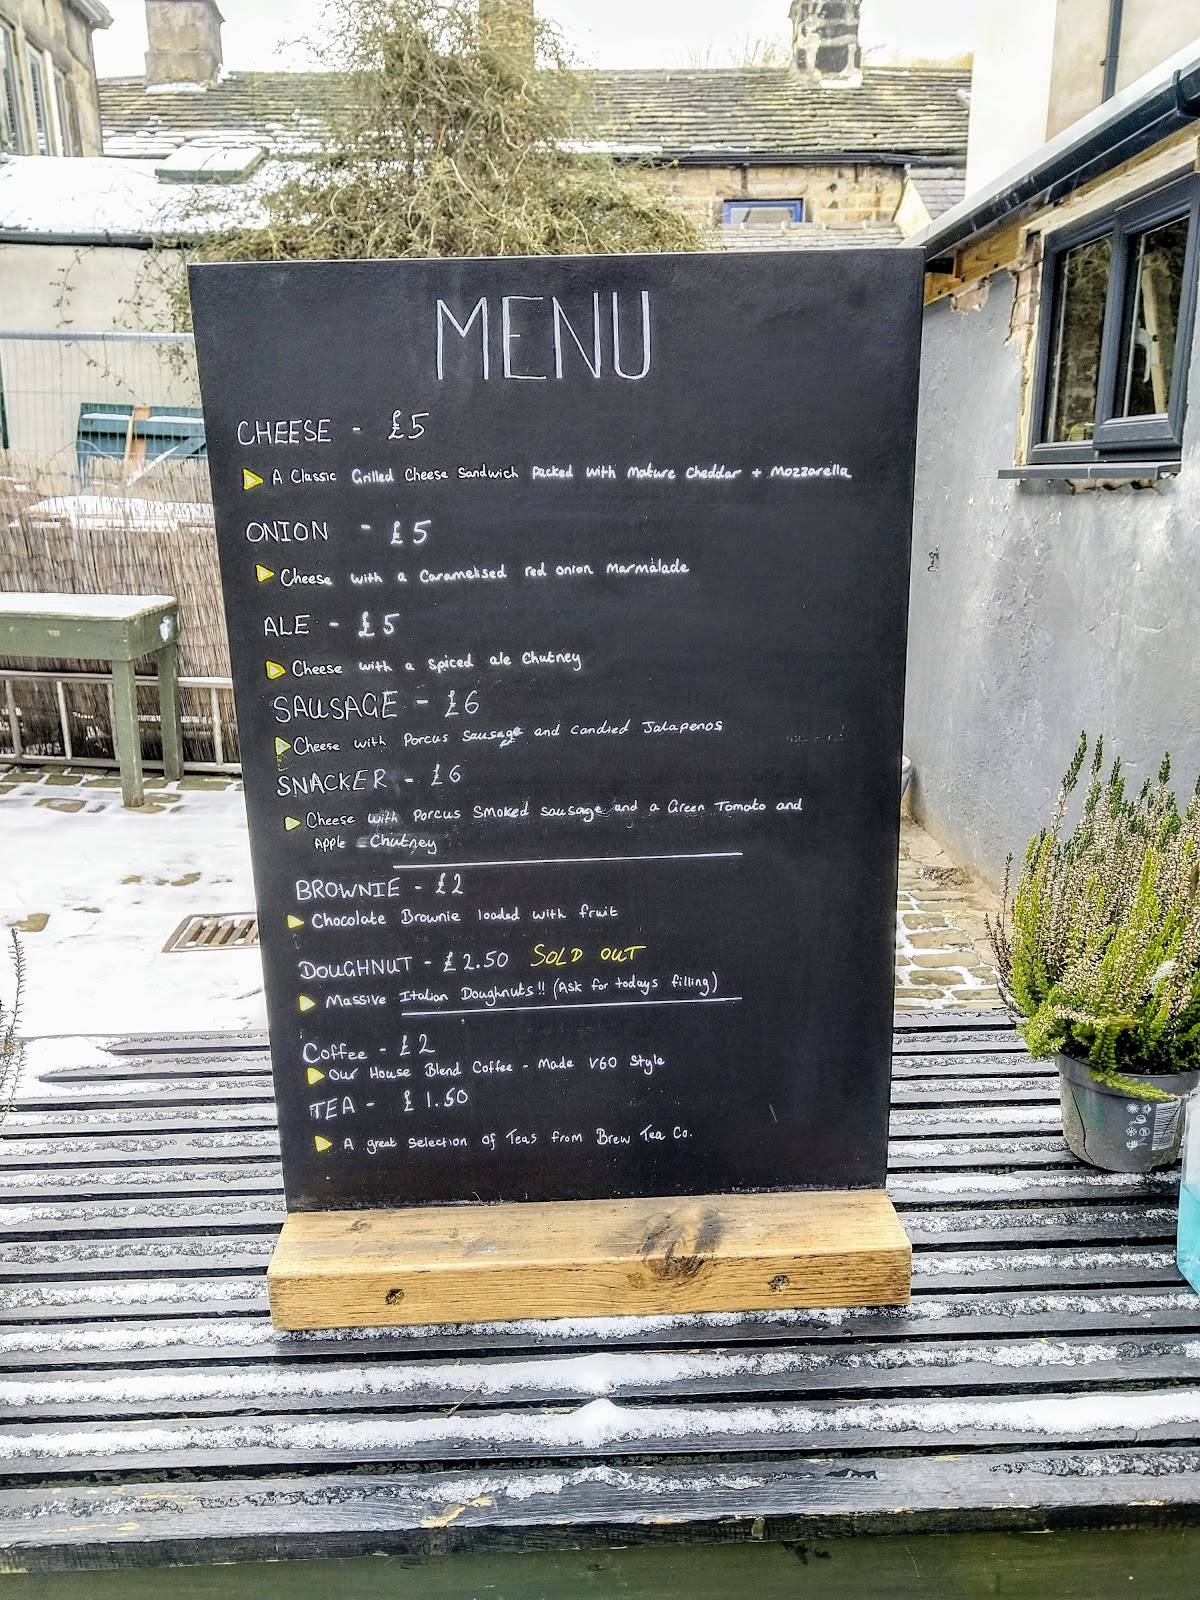 MENU
CHEESE - £5
A Classic Grilled Cheese Sandwich Packed with Mature Cheddar + Mozzarella
ONION - £5
Cheese with a Caramelised red onion Marmalade
ALE - £5
Cheese with a Spiced ale Chutney
SAUSAGE - £6
Cheese with Porcus Sausage and Candied Jalapenos
SNACKER - £6
Cheese with Porcus Smoked sausage and a Green Tomato and
Apple Chutney
BROWNIE - £2
Chocolate Brownie loaded with fruit
DOUGHNUT - £2.50 SOLD OUT
Massive Italian Doughnuts!! (Ask for todays filling)
Coffee - £2
Our House Blend Coffee - Made V60 Style
TEA - £1.50
A great Selection of Teas from Brew Tea Co.